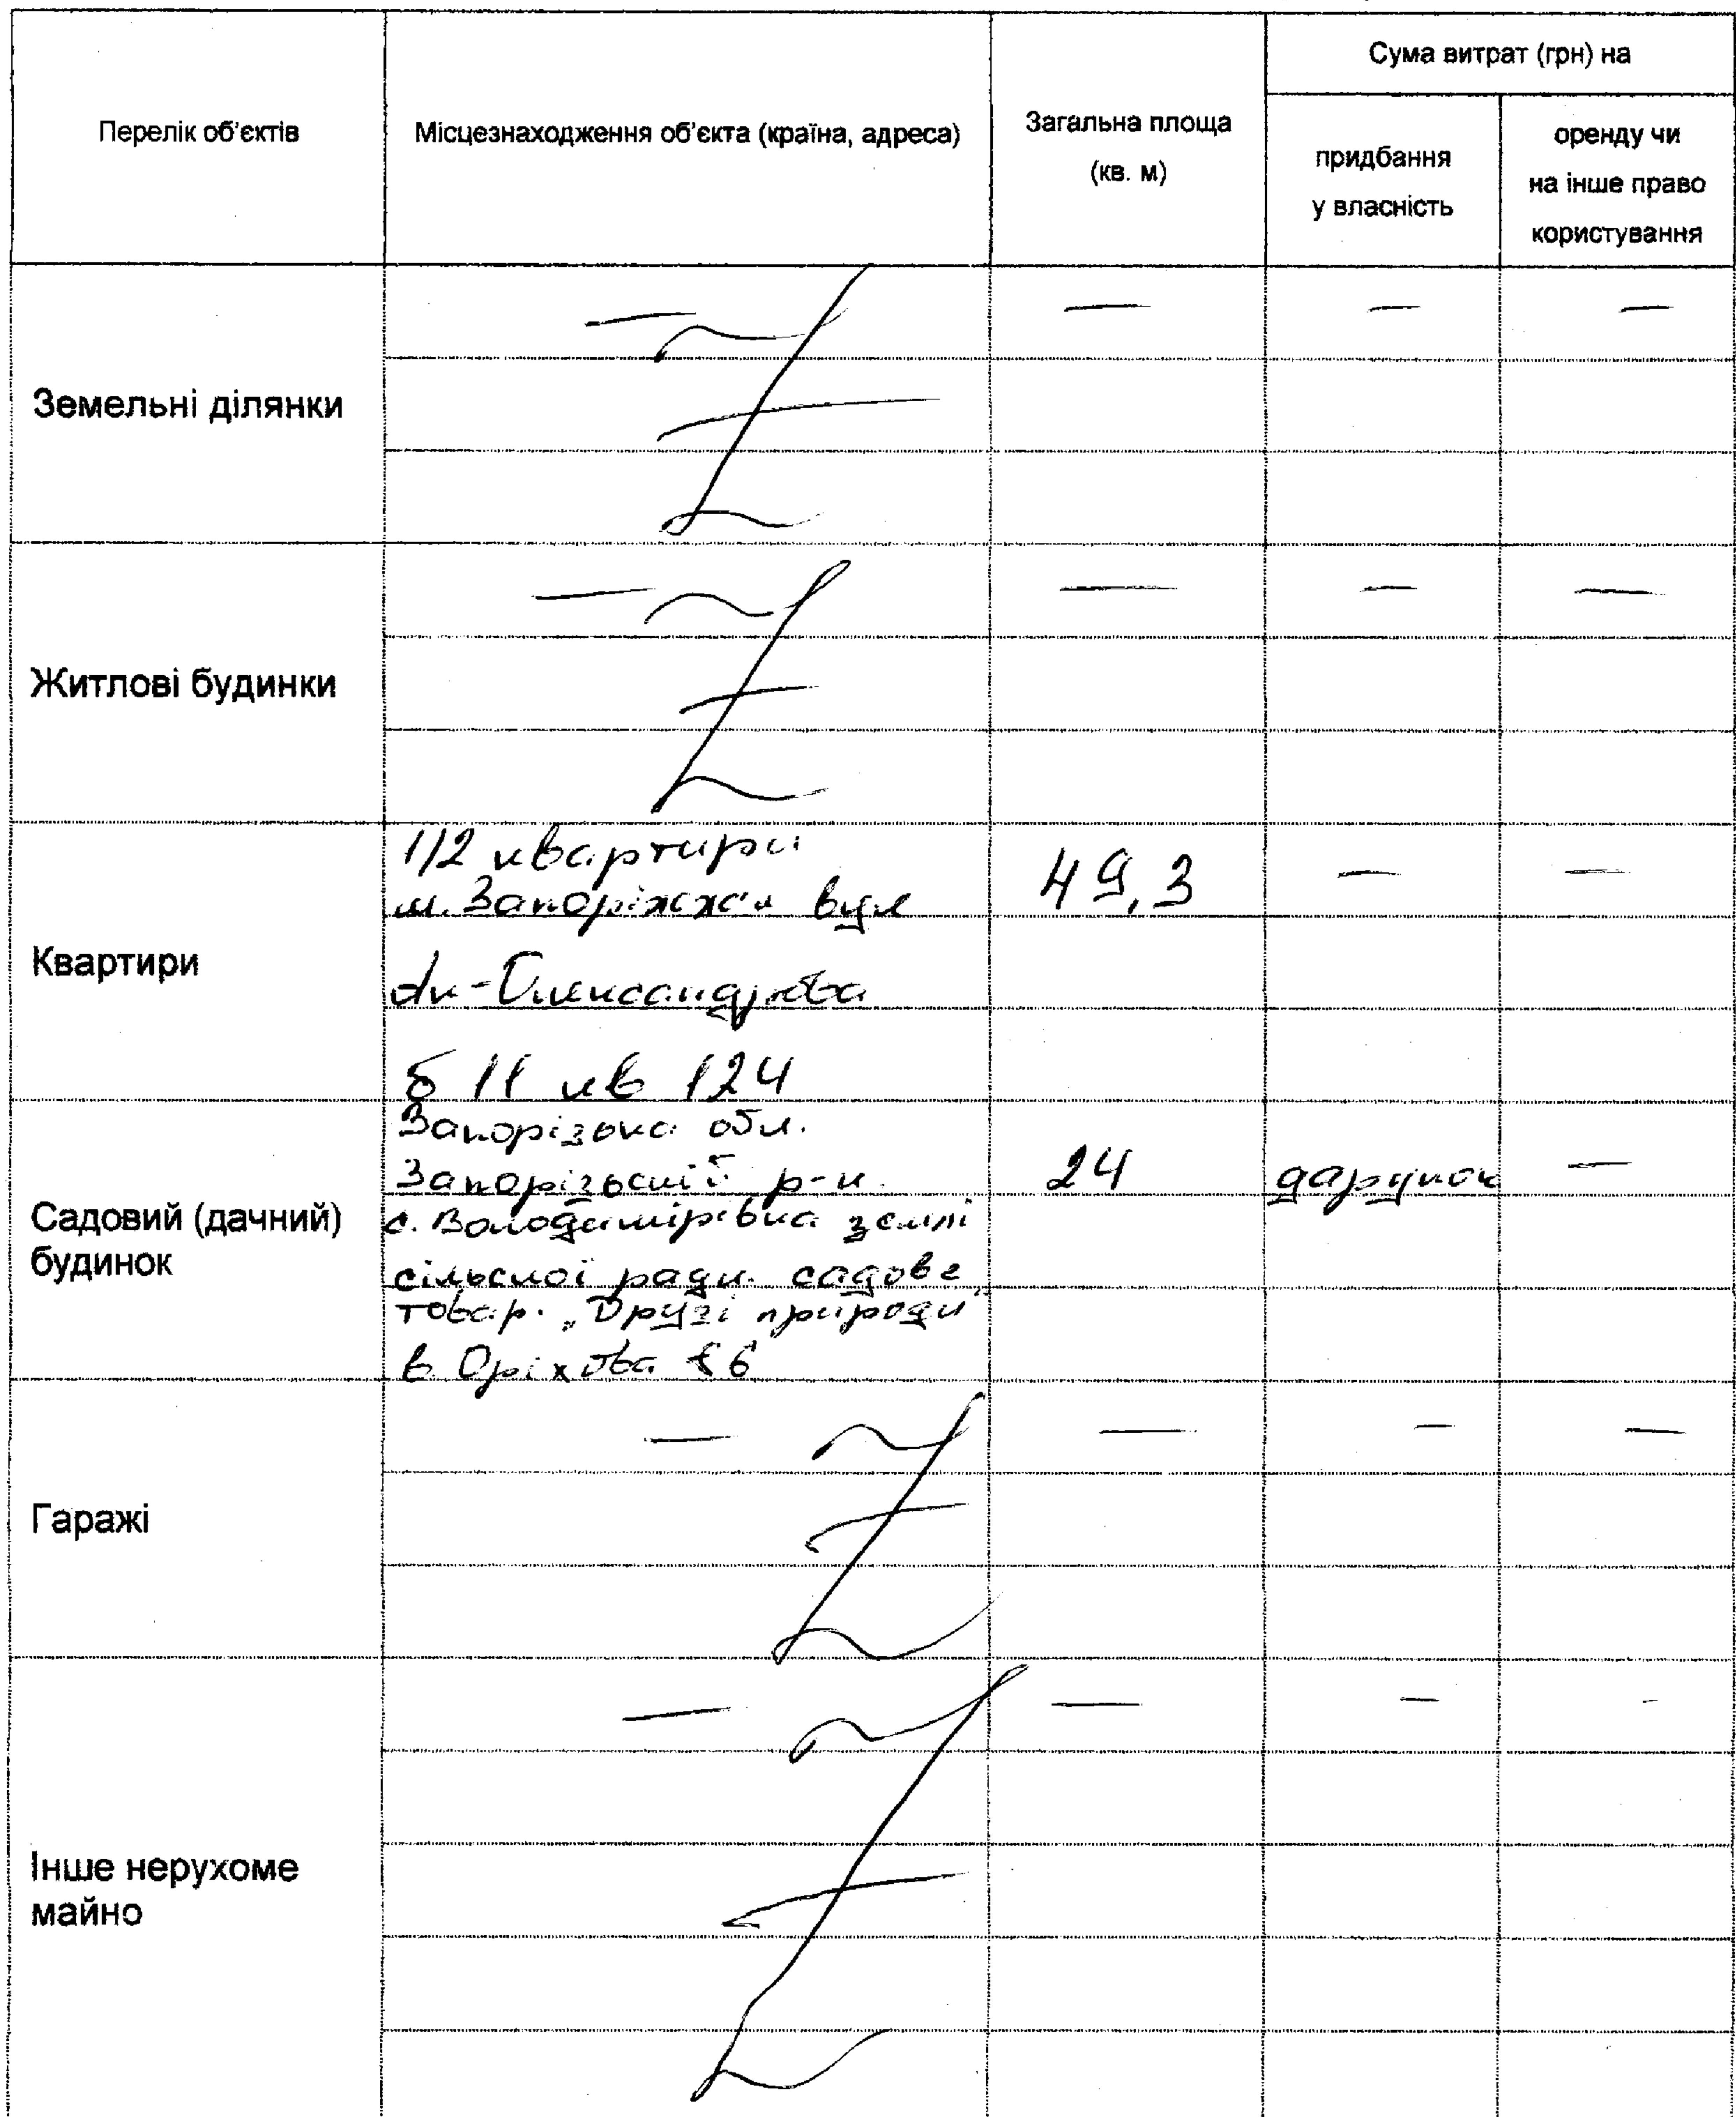 Перелік об'єктів
Місцезнаходження об'єкта (країна, адреса)
Загальна площа
(кв. м)
Сума витрат (грн) на
придбання
у власність
оренду чи
на інше право
користування
Земельні ділянки
— — — —
Житлові будинки
— — — —
Квартири
1/2 квартири
м. Запоріжжя вул
Олександрова
б 11 кв 124
49,3 — —
Садовий (дачний)
будинок
Запорізька обл.
Запорізський р-н.
с. Володимирівка землі
сільської ради садове
товар. „Друзі природи"
в. Оріхова 6
24 дарунок —
Гаражі
— — — —
Інше нерухоме
майно
— — — —